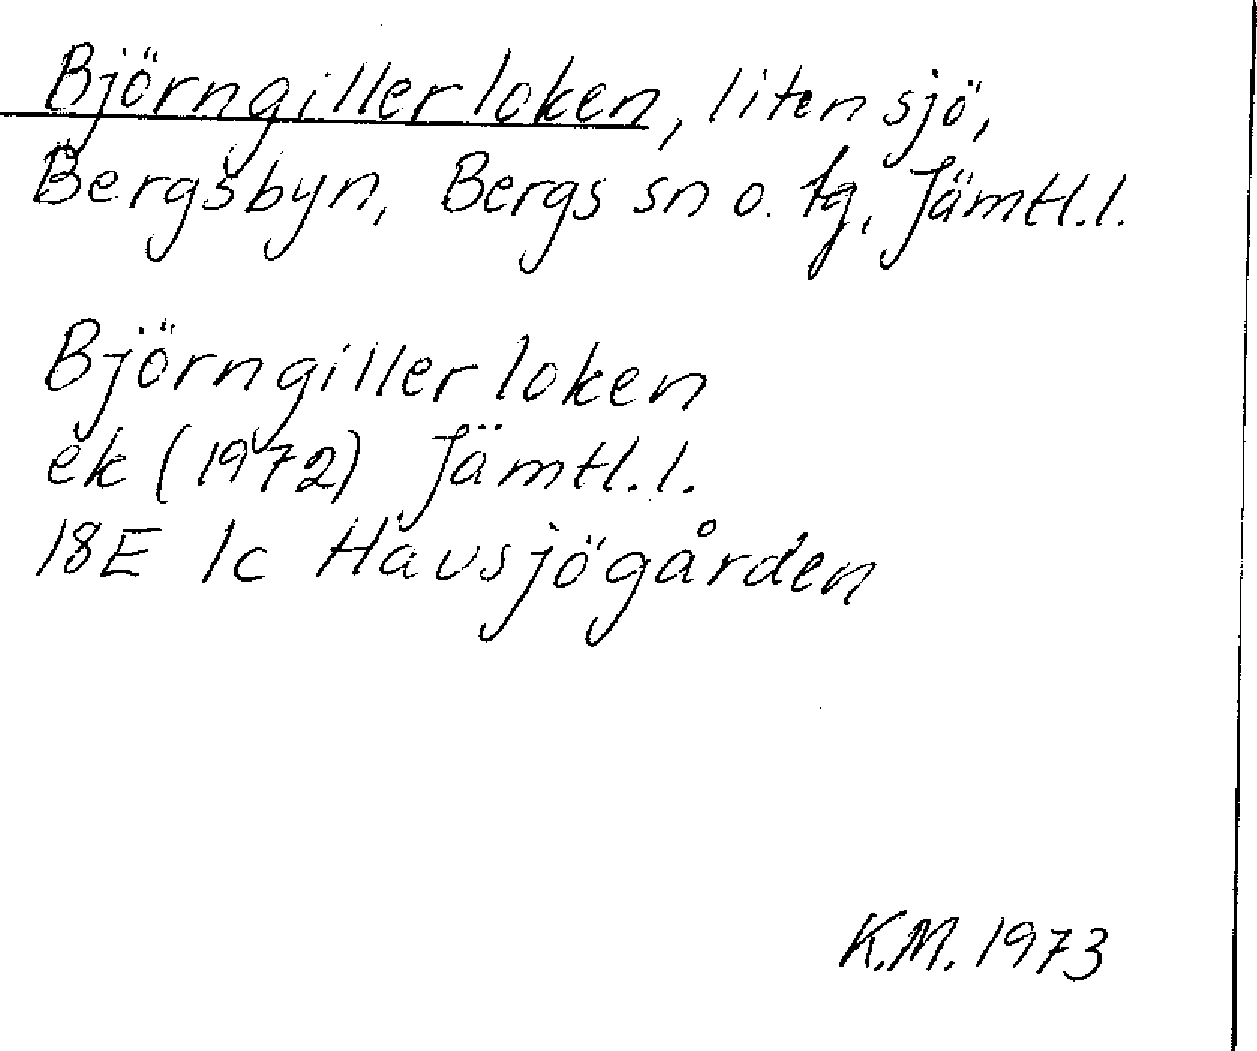 Björngillerloken, liten sjö,
Bergsbyn, Bergs sn o. tg, Jämtl.l.
Björngillerloken
ek (1972) Jämtl.l.
18E 1c Havsjögården
K.M. 1973